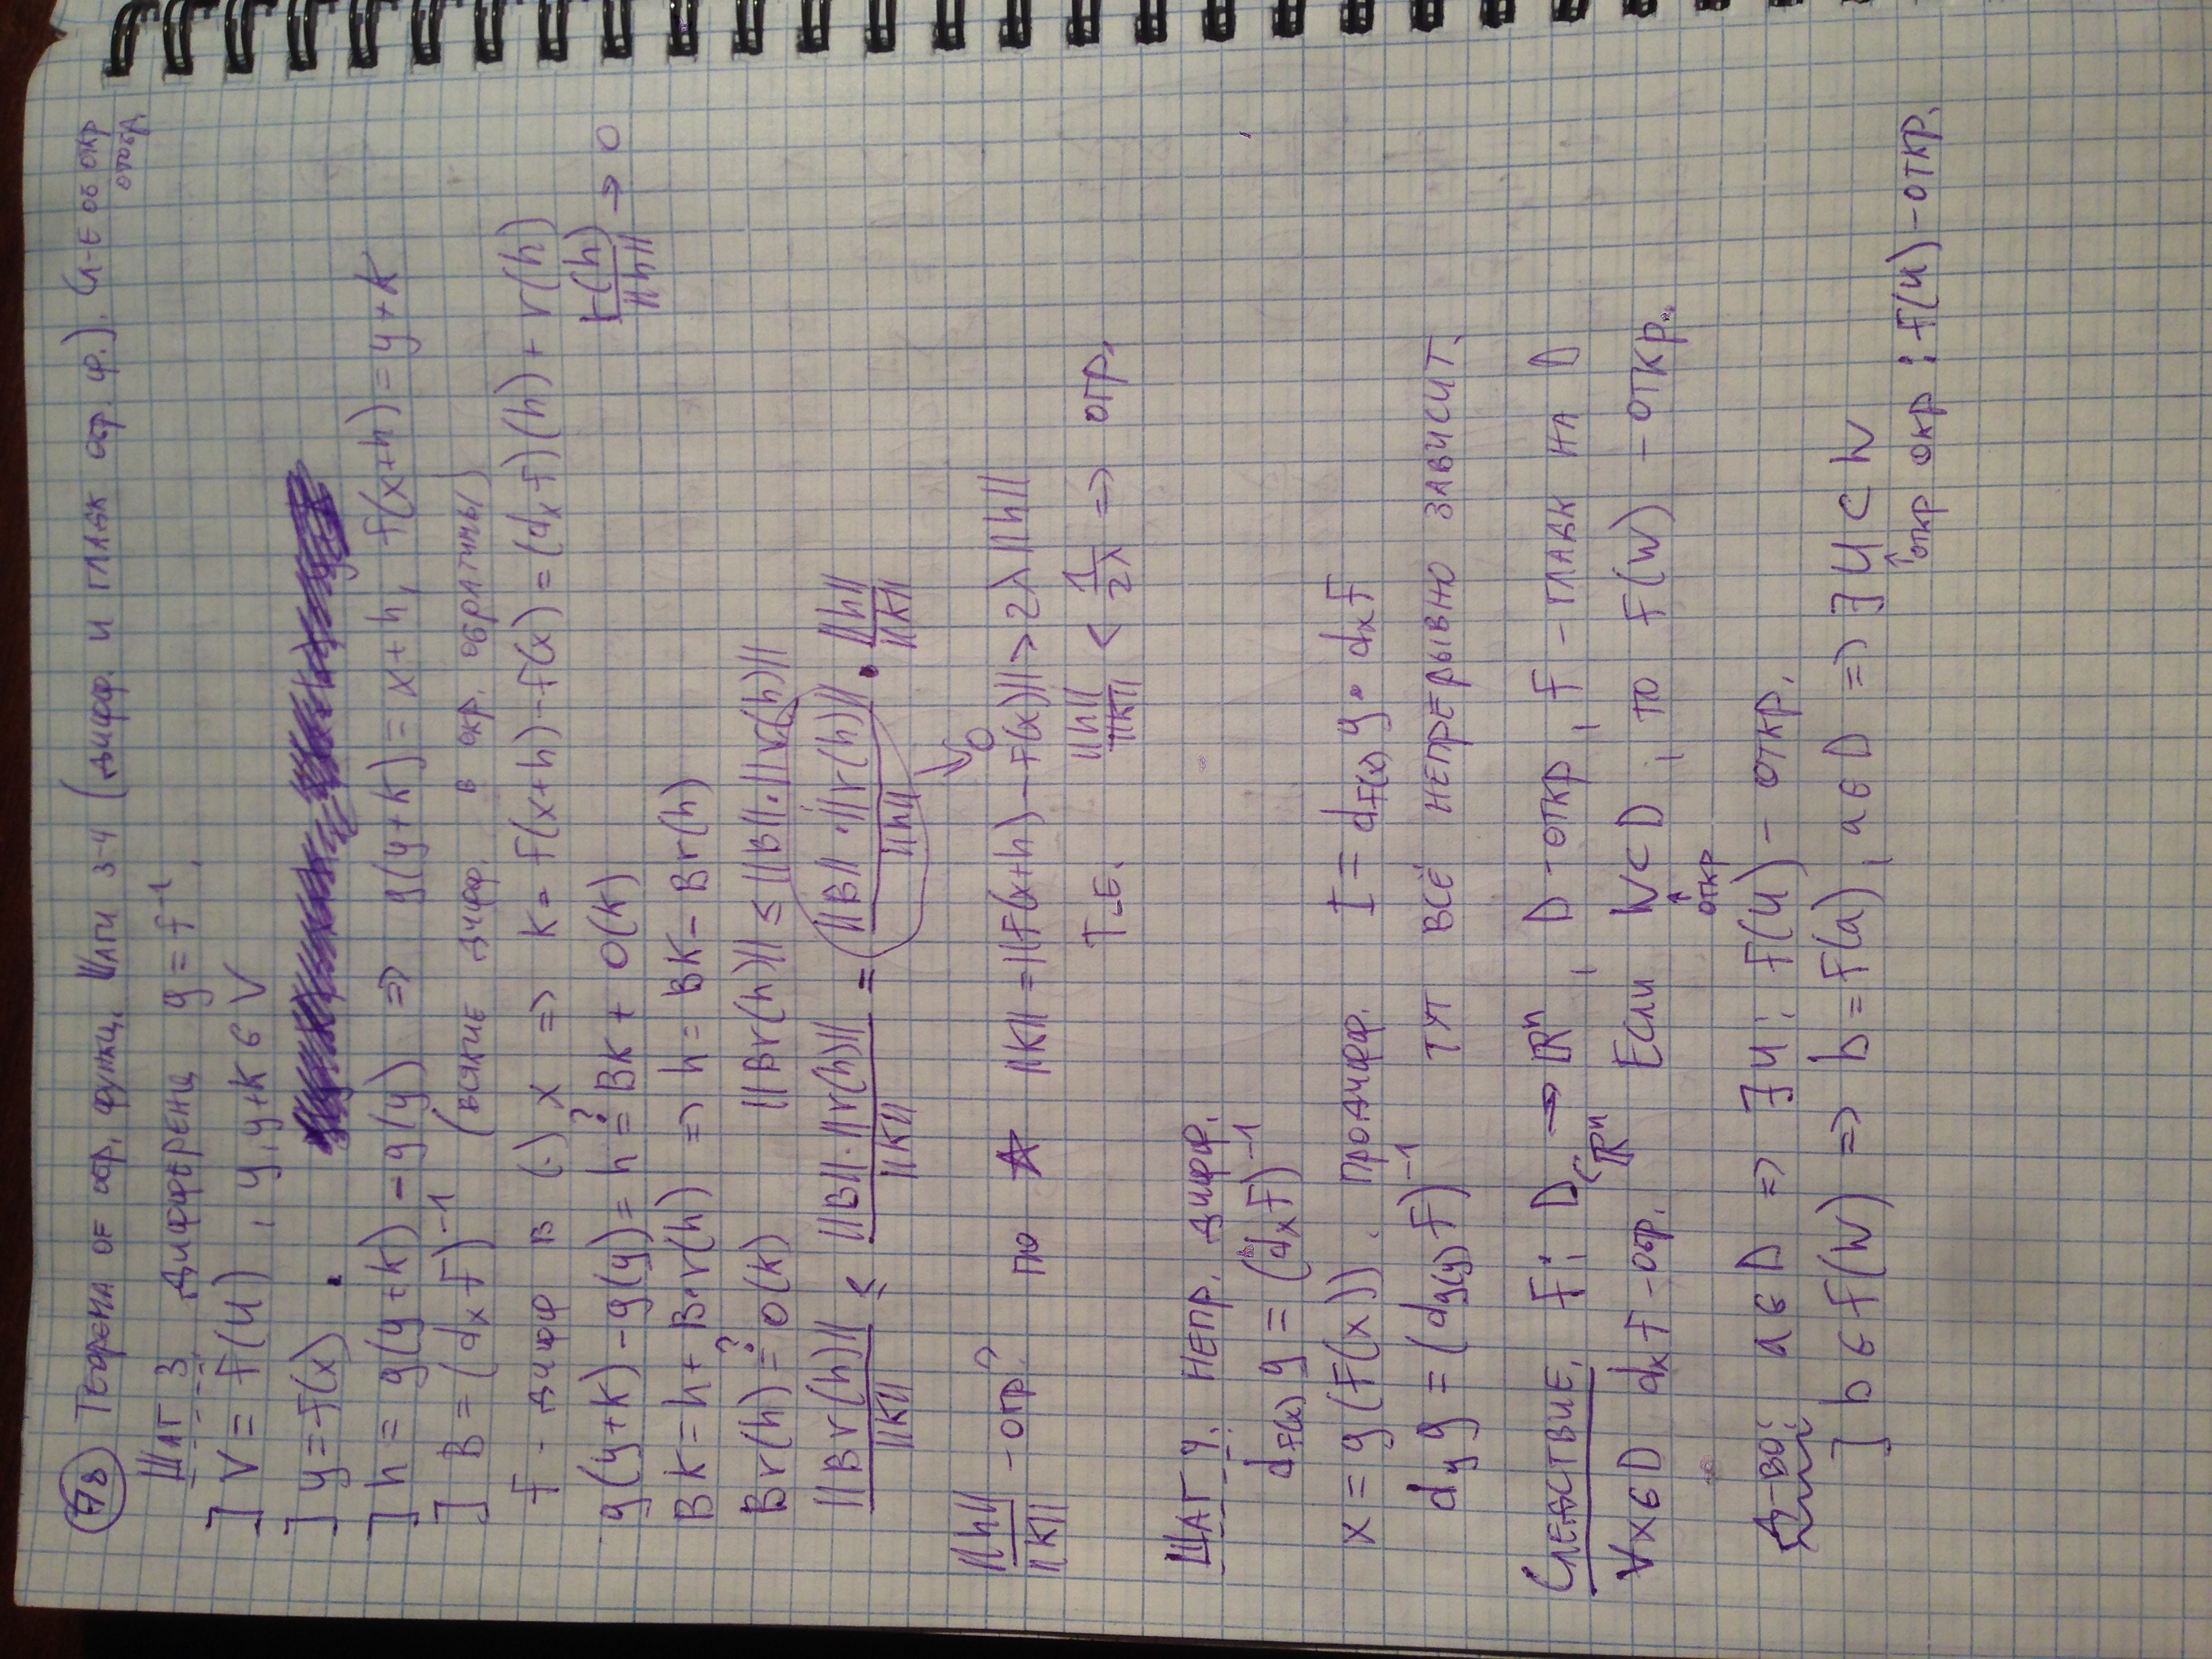 78 Теорема об обр. функц. Шаги 3-4 (дифф. и гладк обр. ф.). (Л-е об откр отобр.
Шаг 3. Дифференц g = f⁻¹.
] V = f(U), y, y+k ∈ V
] y = f(x).
] h = g(y+k) - g(y) => g(y+k) = x+h, f(x+h) = y+k
] B = (dₓf)⁻¹ (всякие дифф. в окр. обратимы)
f - дифф в (·) x => k = f(x+h) - f(x) = (dₓf)(h) + r(h)
r(h)/||h|| → 0
g(y+k) - g(y) = h =? Bk + o(k)
Bk = h + B·r(h) => h = Bk - Br(h)
Br(h) =? o(k) ||Br(h)|| ≤ ||B||·||r(h)||
||Br(h)||/||k|| ≤ ||B||·||r(h)||/||k|| = ||B||·||r(h)||/||h|| · ||h||/||k||
↘ 0
||h||/||k|| - огр? по ☆ ||k|| = ||f(x+h) - f(x)|| > 2λ||h||
т.е. ||h||/||k|| < 1/2λ => огр.
Шаг 4. Непр. дифф.
d_f(x) g = (dₓf)⁻¹
x = g(f(x)). продифф. I = d_f(x) g · dₓf
d_y g = (d_g(y) f)⁻¹ тут всё непрерывно зависит.
Следствие. f: D ⊂ℝⁿ → ℝⁿ, D - откр, f - гладк на D
∀x∈D dₓf - обр. Если W⊂D, то f(W) - откр.
↑ откр
Д-во: a∈D => ∃U: f(U) - откр.
] b∈f(W) => b = f(a), a∈D => ∃U⊂W
↑ откр окр : f(U) - откр.